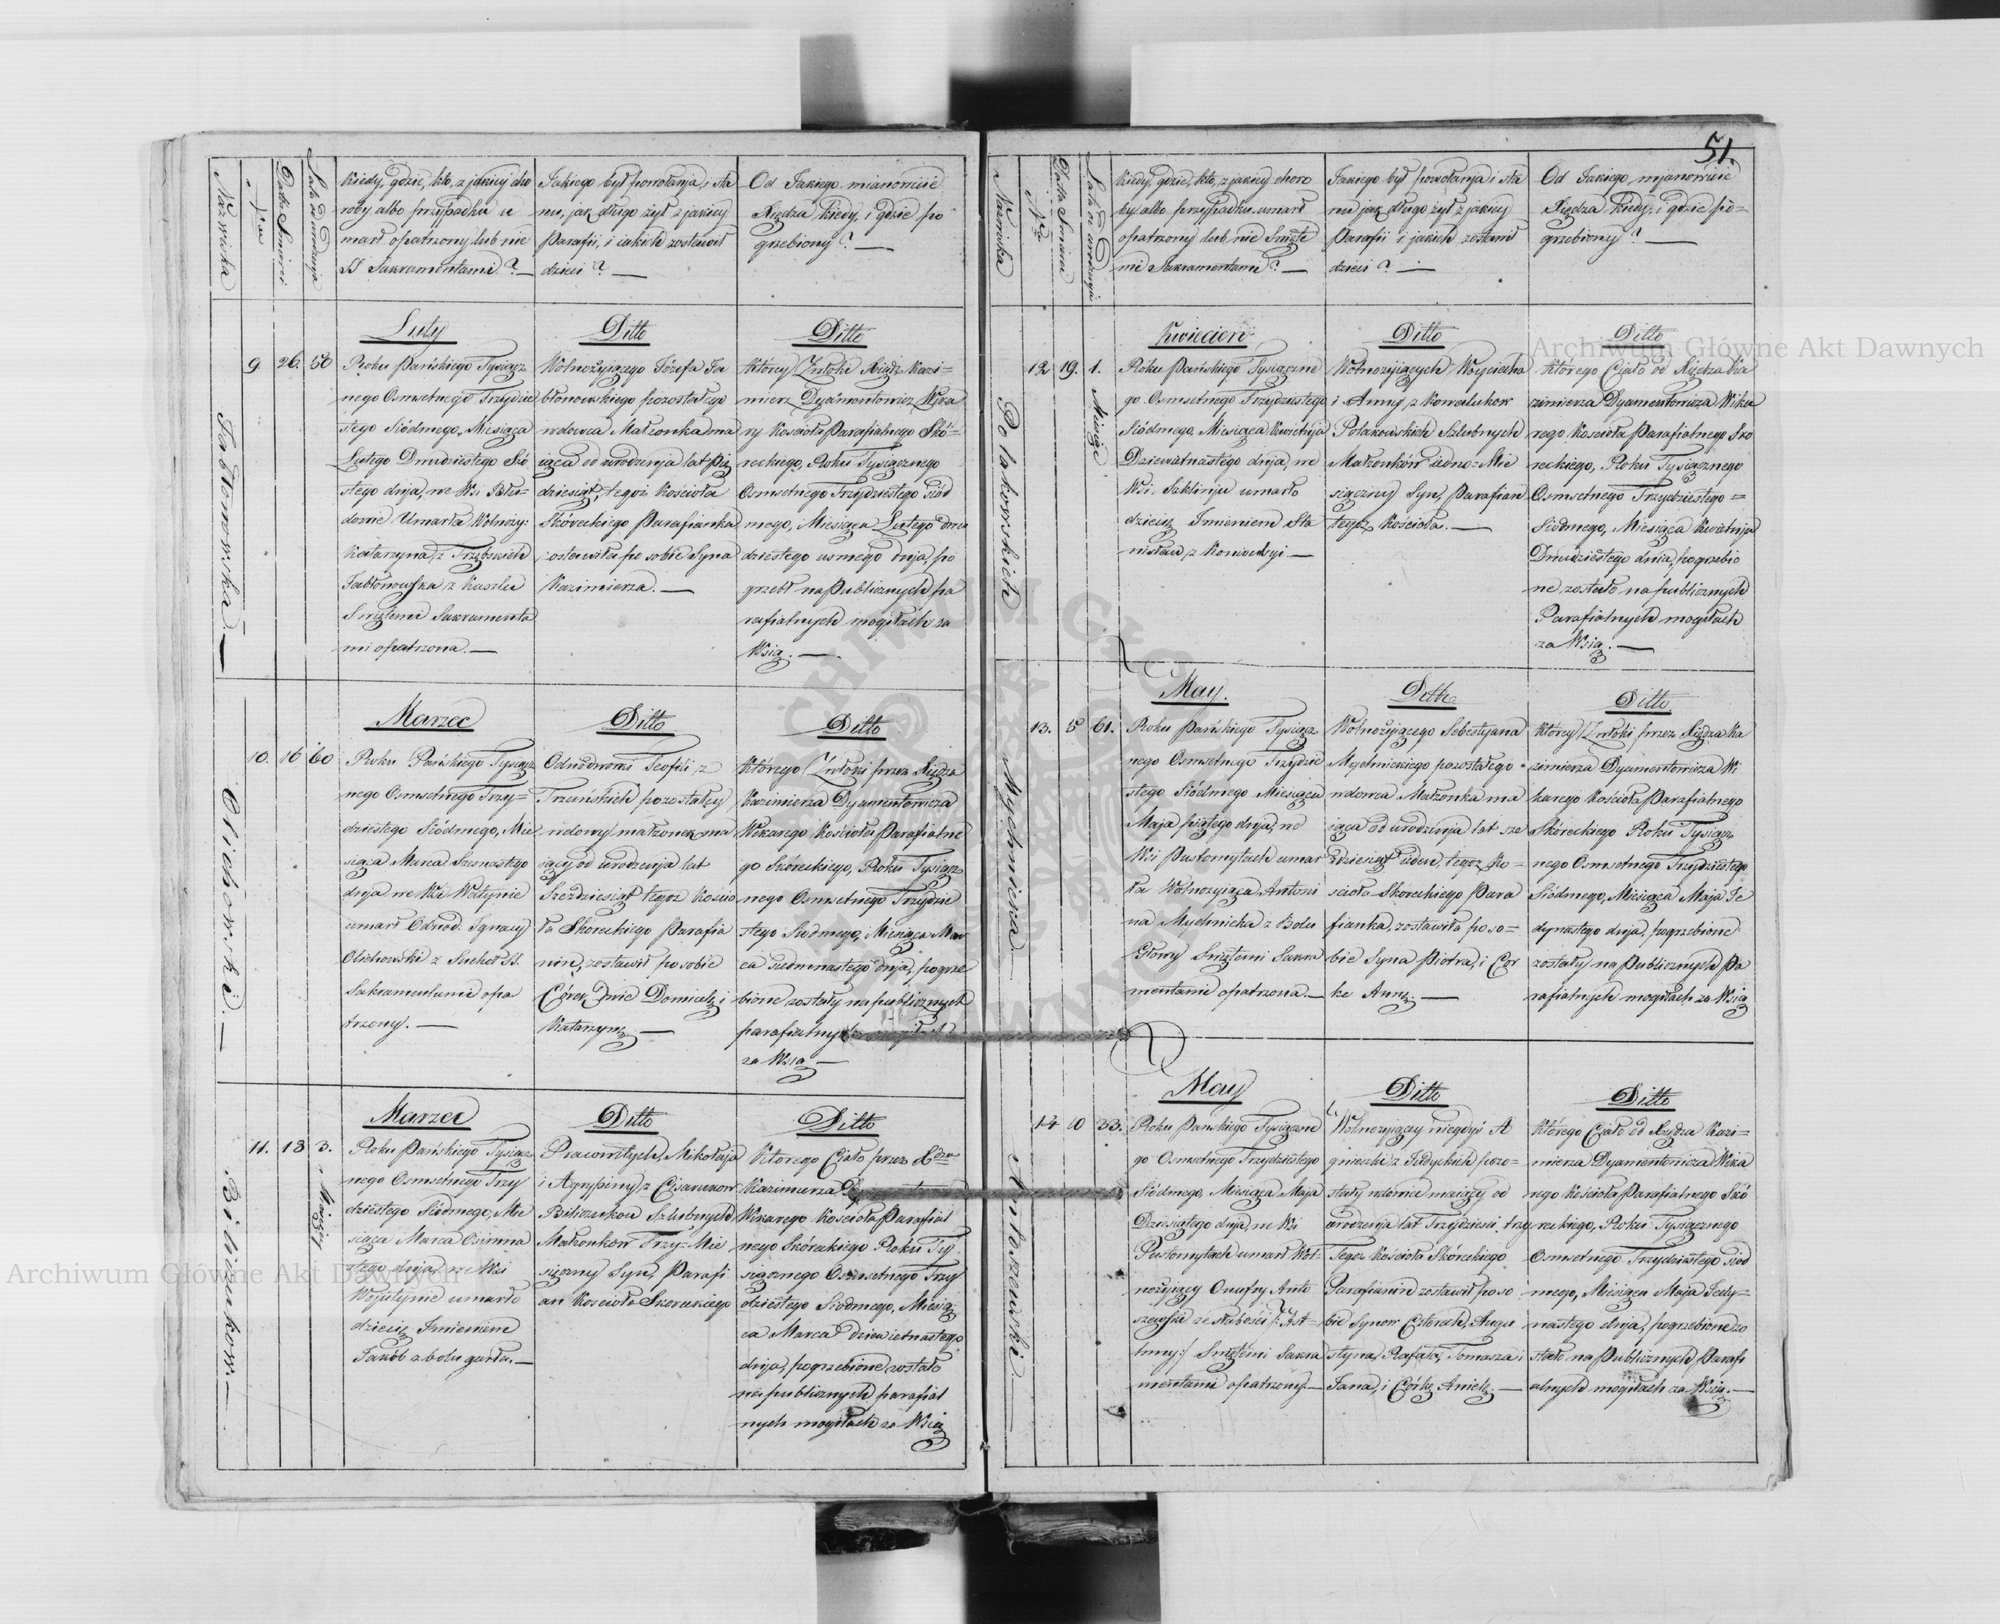 51.
Nazwiska
Nro
Datta Śmierci
Lata od urodzenia
Kiedy, gdzie, kto, z jakiej cho
roby albo przypadku u
marł opatrzony lub nie
SS Sakramentami? —
Jakiego był powołania i sta
nu, jak długo żył z jakiey
Parafii, i iakich zostawił
dzieci? —
Od Jakiego mianowicie
Xiędza kiedy, i gdzie po
grzebiony? —
Jabłonowska —
9. 26. 50
Luty
Roku Pańskiego Tysiącz
nego Osmsetnego Trzydzie
stego Siódmego, Miesiąca
Lutego Dwudziestego Szó
stego dnia, we Wsi
Umarła Wolnoży:
Katarzyna z
Jabłonowska z Kaszlu
Swiętemi Sakramenta
mi opatrzona. —
Ditto
Wolnożyjącego Józefa Ja
błonowskiego pozostałego
wdowca Małzonka ma
iąca od urodzenia lat Pię
dziesiąt, tegoż Kościoła
Skóreckiego Parafianka
zostawiła po sobie Syna
Kazimierza. —
Ditto
Którey Zwłoki Xiądz Kazi=
mierz Dyamentowicz Wika
ry Kościoła Parafialnego Skó=
reckiego, Roku Tysiącznego
Osmsetnego Trzydziestego Siód
mego, Miesiąca Lutego dwu
dziestego osmego dnia, po
grzebł na Publicznych pa
rafialnych mogiłach za
Wsią. —
Olichowski. —
10. 16 60
Marzec
Roku Pańskiego Tysiącz
nego Osmsetnego Trzy=
dziestego Siódmego, Mie
siąca Marca Szesnastego
dnia we Wsi Wołynie
umarł Odnod. Ignacy
Olichowski z Suchot SS.
Sakramentami opa
trzony. —
Ditto
Odnodworki Teofili z
Trzeińskich pozostałey
wdowy małzonek ma
iący od urodzenia lat
Sześćdziesiąt tegoż Kościo
ła Skoreckiego Parafia
nin, zostawił po sobie
Córek Dwie Domicelę i
Katarzynę. —
Ditto
Którego Zwłoki przez Xiędza
Kazimierza Dyamentowicza
Wikarego Kościoła Parafialne
go Skóreckiego, Roku Tysiącz
nego Osmsetnego Trzydzie
stego Siodmego, Miesiąca Mar
ca siedmnastego dnia, pogrze
bione zostały na publicznych
parafialnych
za Wsią —
Biliczukow. —
11. 18 3. Miesięcy
Marzec
Roku Pańskiego Tysiącz
nego Osmsetnego Trzy
dziestego Siódmego, Mie
siąca Marca Osimna
stego dnia, we Wsi
Wojutynie umarło
dziecię Imieniem
Jakób z bolu gardła. —
Ditto
Pracowitych, Mikołaja
i Agrypiny z Cisarukow
Biliczukow Szlubnych
Małzonkow Trzy=Mie
sięczny Syn, Parafi
an Kościoła Skoreckiego
Ditto
Którego Ciało przez Xdza
Kazimierza
Wikarego Kościoła Parafial
nego Skóreckiego Roku Ty
siącznego Osmsetnego Trzy
dziestego Siodmego, Miesią
ca Marca dziewietnastego
dnia, pogrzebione zostało
na publicznych parafial
nych mogiłach za Wsią
Nazwiska
Nro
Datta Śmierci
Lata od urodzenia
Kiedy, gdzie, kto, z jakiey choro
by albo przypadku umarł
opatrzony lub nie Swięte
mi Sakramentami? —
Jakiego był powołania i sta
nu jak długo żył z jakiey
Parafii i jakich zostawił
dzieci? —
Od Jakiego, mianowicie
Xiędza kiedy, i gdzie po=
grzebiony? —
Polakowskich
12 19. 1. Miesiąc
Kwiecień
Roku Pańskiego Tysiączne
go Osmsetnego Trzydziestego
Siódmego, Miesiąca Kwietnia
Dziewiatnastego dnia, we
Wsi Szklinju umarło
dziecię Imieniem Sta
nisław z Konwulsyi. —
Ditto
Wolnożyjących Woyciecha
i Anny z Kowalukow
Polakowskich Szlubnych
Małzonków iedno=Mie
sięczny Syn, Parafian
tegoż Kościoła. —
Ditto
Którego Ciało od Xiędza Ka
zimierza Dyamentowicza Wika
rego Kościoła Parafialnego Skó
reckiego, Roku Tysiącznego
Osmsetnego Trzydziestego =
Siodmego, Miesiąca Kwietnia
Dwudziestego dnia, pogrzebio
ne, zostało na publicznych
Parafialnych mogiłach
za Wsią. —
Mychnicka —
13. 5 61.
May.
Roku Pańskiego Tysiącz
nego Osmsetnego Trzydzie
stego Siódmego Miesiąca
Maja, piątego dnia, we
Wsi Pustomytach umar
ła Wolnożyjąca Antoni
na Mychnicka z Bolu
Głowy Swiętemi Sakra
mentami opatrzona. —
Ditto
Wolnożyjącego Sebestyana
Mychnickiego pozostałego
wdowca Małzonka ma
iąca od urodzenia lat sze
zdziesiąt ieden, tegoż Ko=
scioła Skoreckiego Para
fianka, zostawiła po so=
bie Syna Piotra, i Cor
kę Annę. —
Ditto
Którey Zwłoki przez Xiędza Ka
zimierza Dyamentowicza Wi
karego Kościoła Parafialnego
Skóreckiego Roku Tysiącz
nego Osmsetnego Trzydziestego
Siódmego, Miesiąca Maja Je
dynastego dnia, pogrzebione
zostały na Publicznych Pa
rafialnych mogiłach za Wsią
Antoszewski —
14 10 33.
May
Roku Pańskiego Tysiączne
go Osmsetnego Trzydziestego
Siódmego, Miesiąca Maja
Dziesiątego dnia, we Wsi
Pustomytach umarł Wol=
nożyjący Onufry Anto
szewski ze słabości
Swiętemi Sakra
mentami opatrzony. —
Ditto
Wolnożyjącey niegdyś A
gnieszki z pozo=
stały wdowiec maiący od
urodzenia lat Trzydzieści trzy
Tegoż Kościoła Skóreckiego
Parafianin zostawił po so
bie Synow Czterech, Augu
styna, Rafała, Tomasza i
Jana, i Córkę Anielę. —
Ditto
Którego Ciało od Xiędza Kazi=
mierza Dyamentowicza Wika
rego Kościoła Parafialnego Skó
reckiego, Roku Tysiącznego
Osmsetnego Trzydziestego Siód
mego, Miesiąca Maja Jedy=
nastego dnia, pogrzebione zo
stało na Publicznych Parafi
alnych mogiłach za Wsią. —
Archiwum Główne Akt Dawnych
Archiwum Główne Akt Dawnych